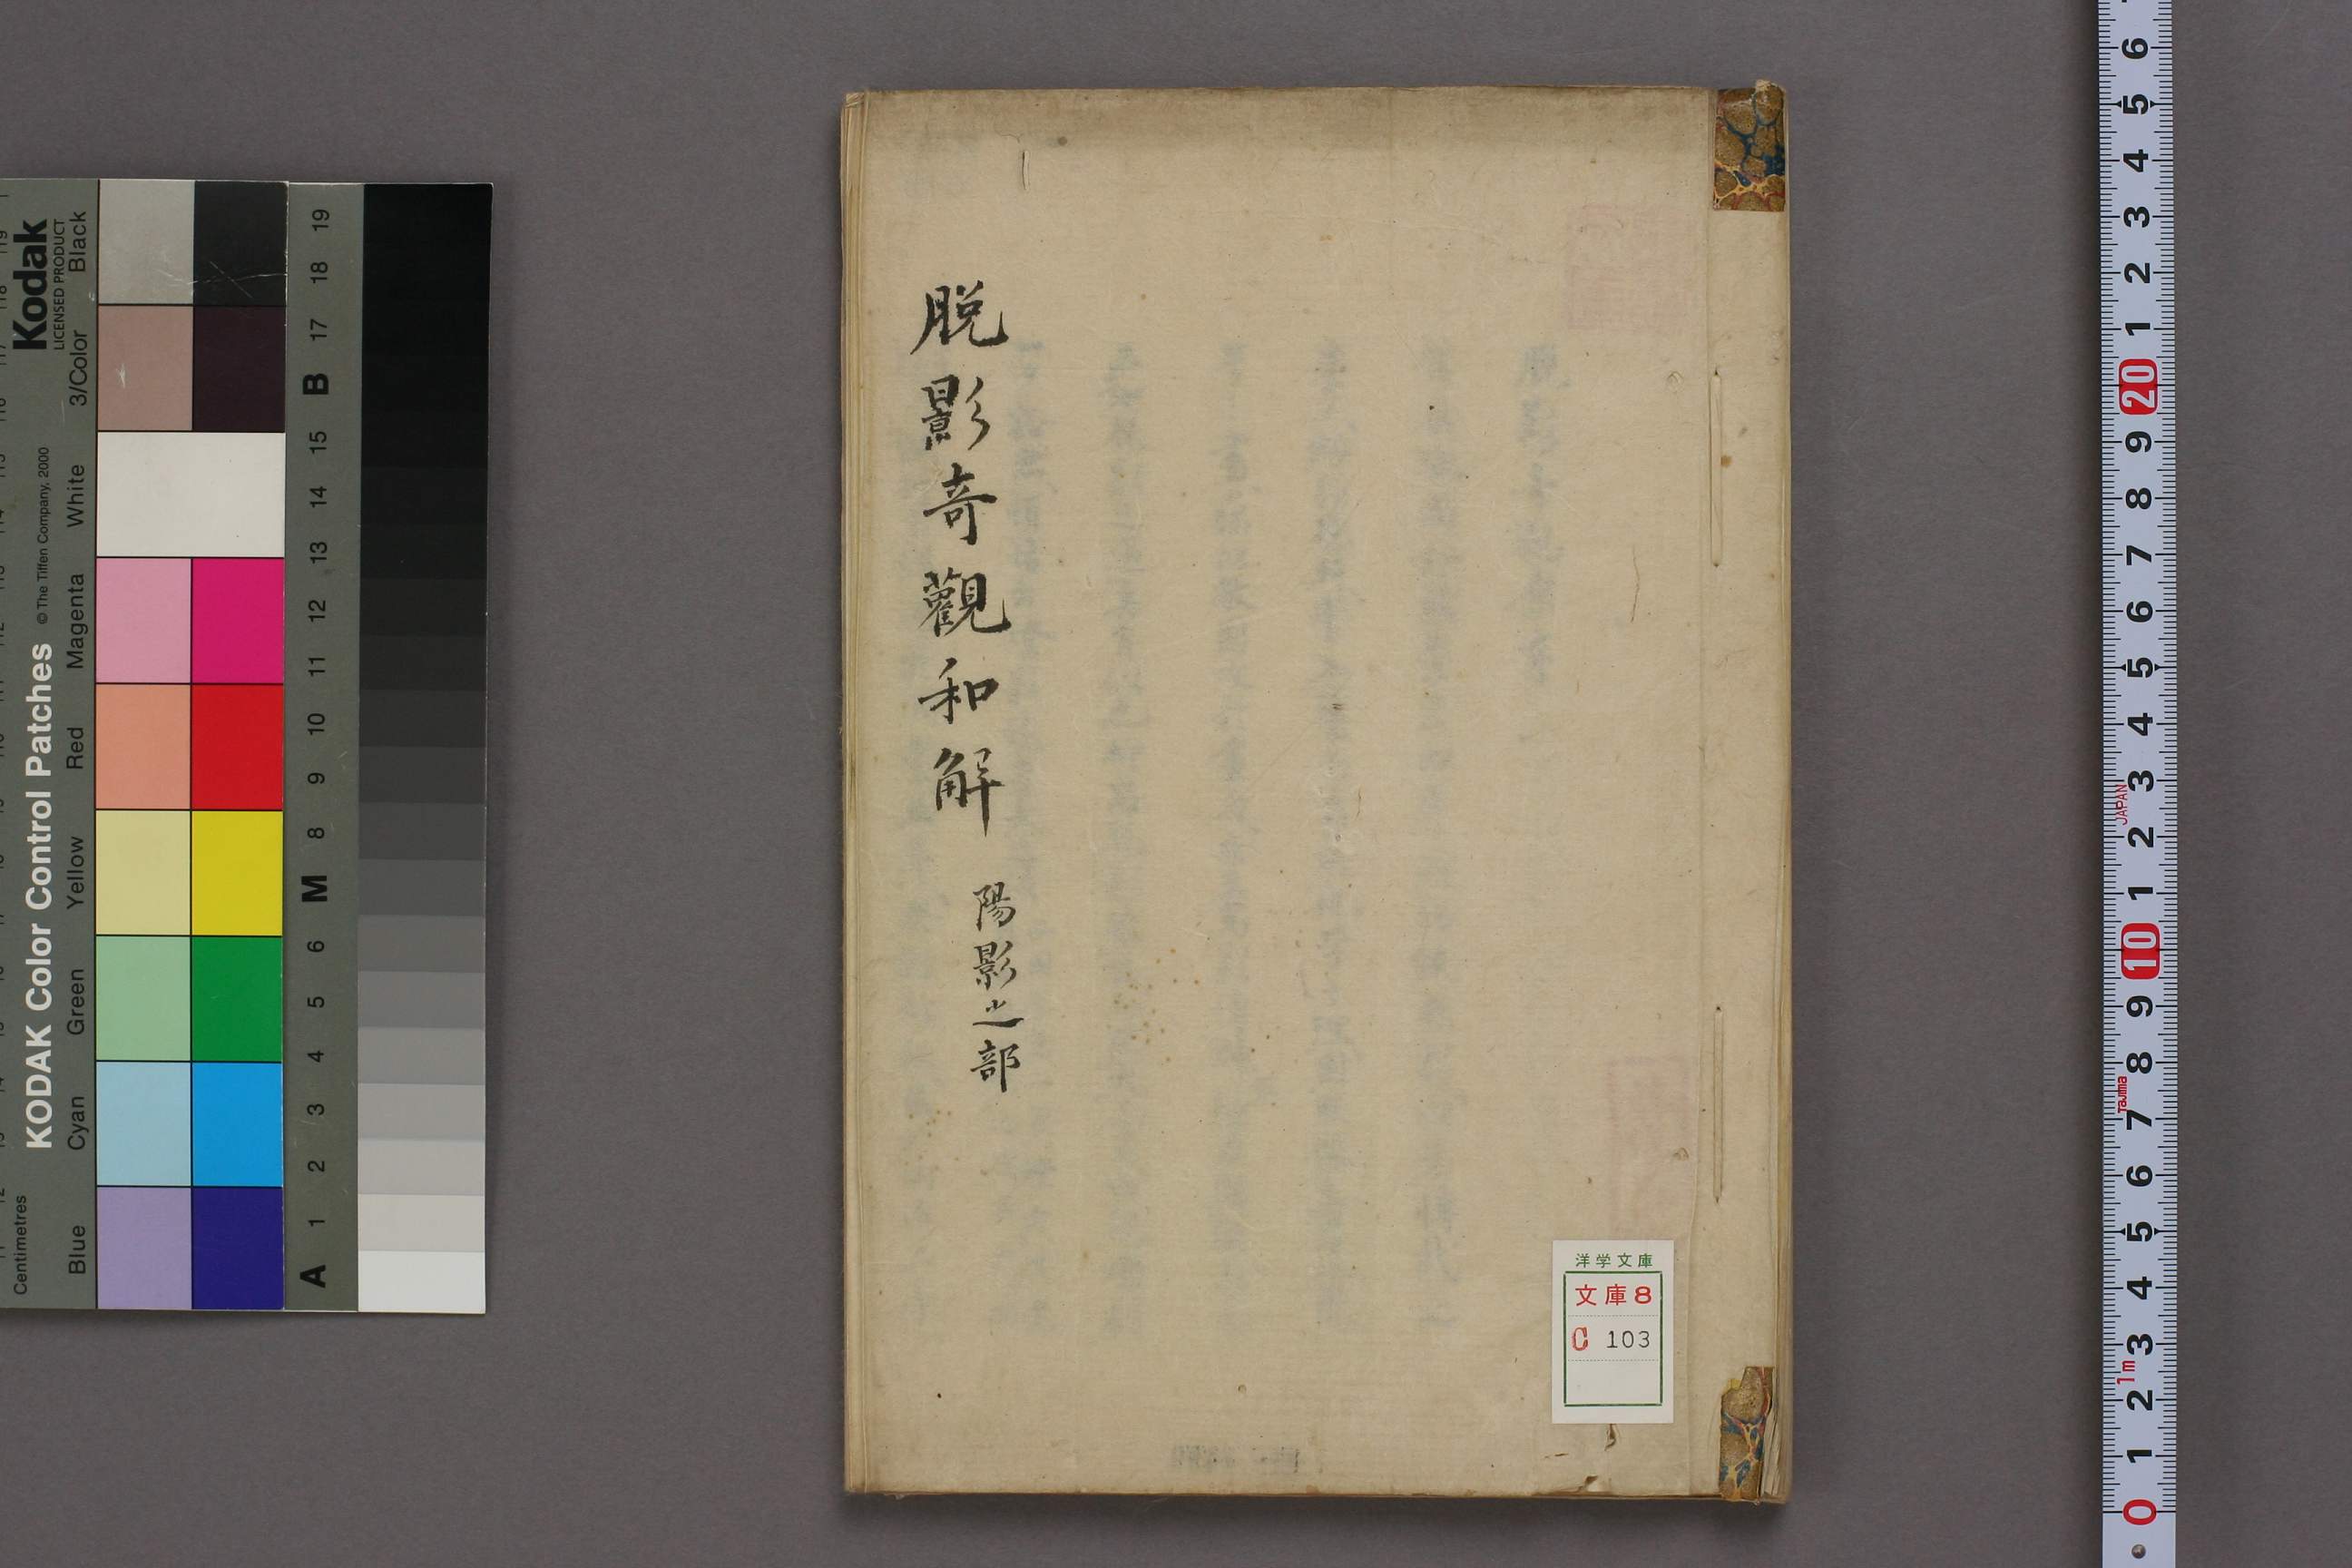 脱影奇觀和解
陽影之部
洋学文庫
文庫8
C 103
Kodak
LICENSED PRODUCT
KODAK Color Control Patches
© The Tiffen Company, 2000
Centimetres
Blue
Cyan
Green
Yellow
Red
Magenta
White
3/Color
Black
A 1 2 3 4 5 6 M 8 9 10 11 12 13 14 15 B 17 18 19
6
5
4
3
2
1
20
9
8
7
6
5
4
3
JAPAN
2
1
10
9
8
Tajima
7
6
5
4
3
1m
2
1
0